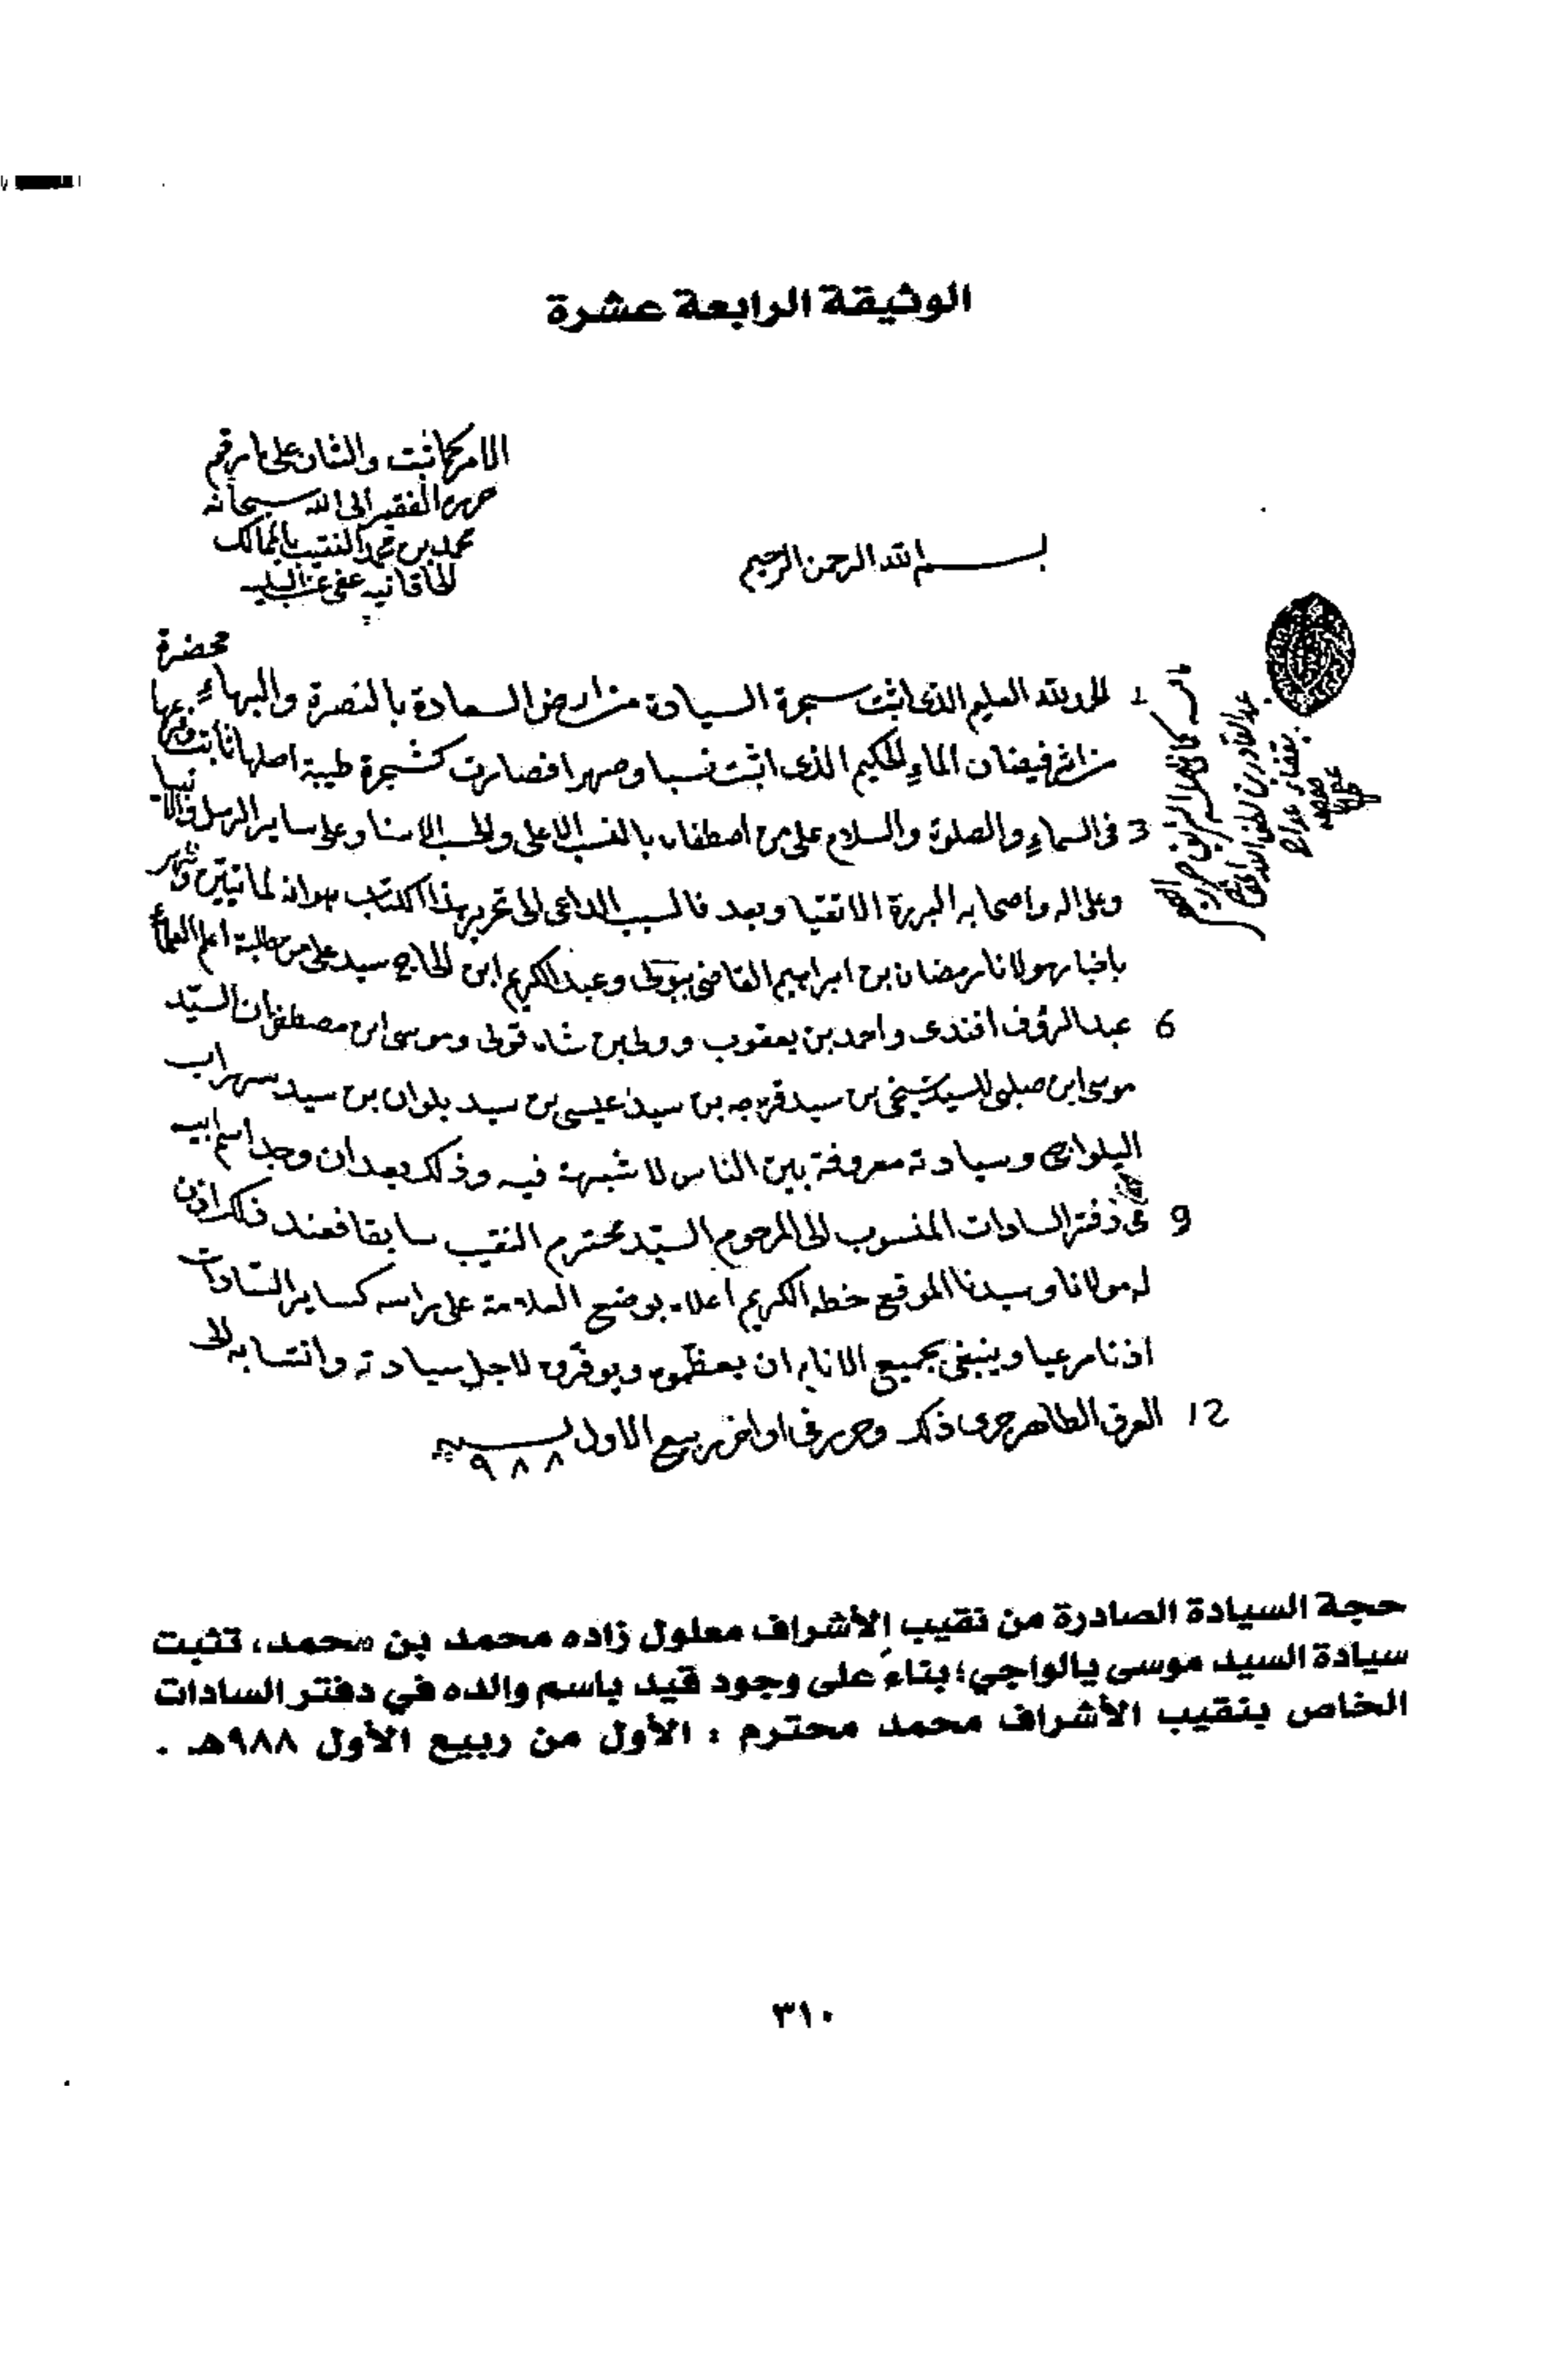 الوثيقة الرابعة عشرة
الامر كما ثبت والشان على ما رقم
حرره الفقير الى الله سبحانه
محمد بن محمد النقيب بالممالك
الخاقانيه عفى عنه
بسم الله الرحمن الرحيم
1 الحمد لله العليم الذى انبت شجرة السيادة من ارض السعادة بالنضرة والبهاء محضرة
فيضان الماء الحكيم الذى اثبت نسبا وصهرا فصارت كشجرة طيبة اصلها ثابت وفرعها
3 فى السماء والصلوة والسلام على من اصطفاه بالنسب الاعلى والحسب الاسنا وعلى ساير الرسل والانبيا
وعلى اله واصحابه البررة الاتقيا وبعد فالسبب الداعى الى تحرير هذا الكتاب هو انه لما تبين
باخبار مولانا رمضان بن ابراهيم القاضى وعبد الكريم ابن الحاج سيد على من طلبة اعلم العلما
6 عبد الرؤف افندى واحمد بن يعقوب وولى بن شاه قولى وموسى ابن مصطفى ان السيد
موسى ابن صلبى للسيد شيخى بن سيد بن سيد عيسى بن سيد بلوان بن سيد سهراب
وسيادته معروفة بين الناس لا شبهة فيه وذلك بعد ان وجد اسم ابيه
9 فى دفتر السادات المنسوب الى المرحوم السيد محترم النقيب سابقا فعند ذلك اذن
له مولانا وسيدنا الموقع خطه الكريم اعلاه بوضع العلامة على راسه كساير السادات
اذنا مرعيا وينبغى لجميع الانام ان يعظموه ويوقروه لاجل سيادته وانتسابه الى
12 العرق الطاهر جرى ذلك وحرر فى اواخر ربيع الاول لسنه
٩٨٨
عبد القادر بن
حجة السيادة الصادرة من نقيب الأشراف معلول زاده محمد بن محمد، تثبت
سيادة السيد موسى يالواجي؛ بناءً على وجود قيد باسم والده في دفتر السادات
الخاص بنقيب الأشراف محمد محترم : الأول من ربيع الأول ٩٨٨هـ .
٣١٠